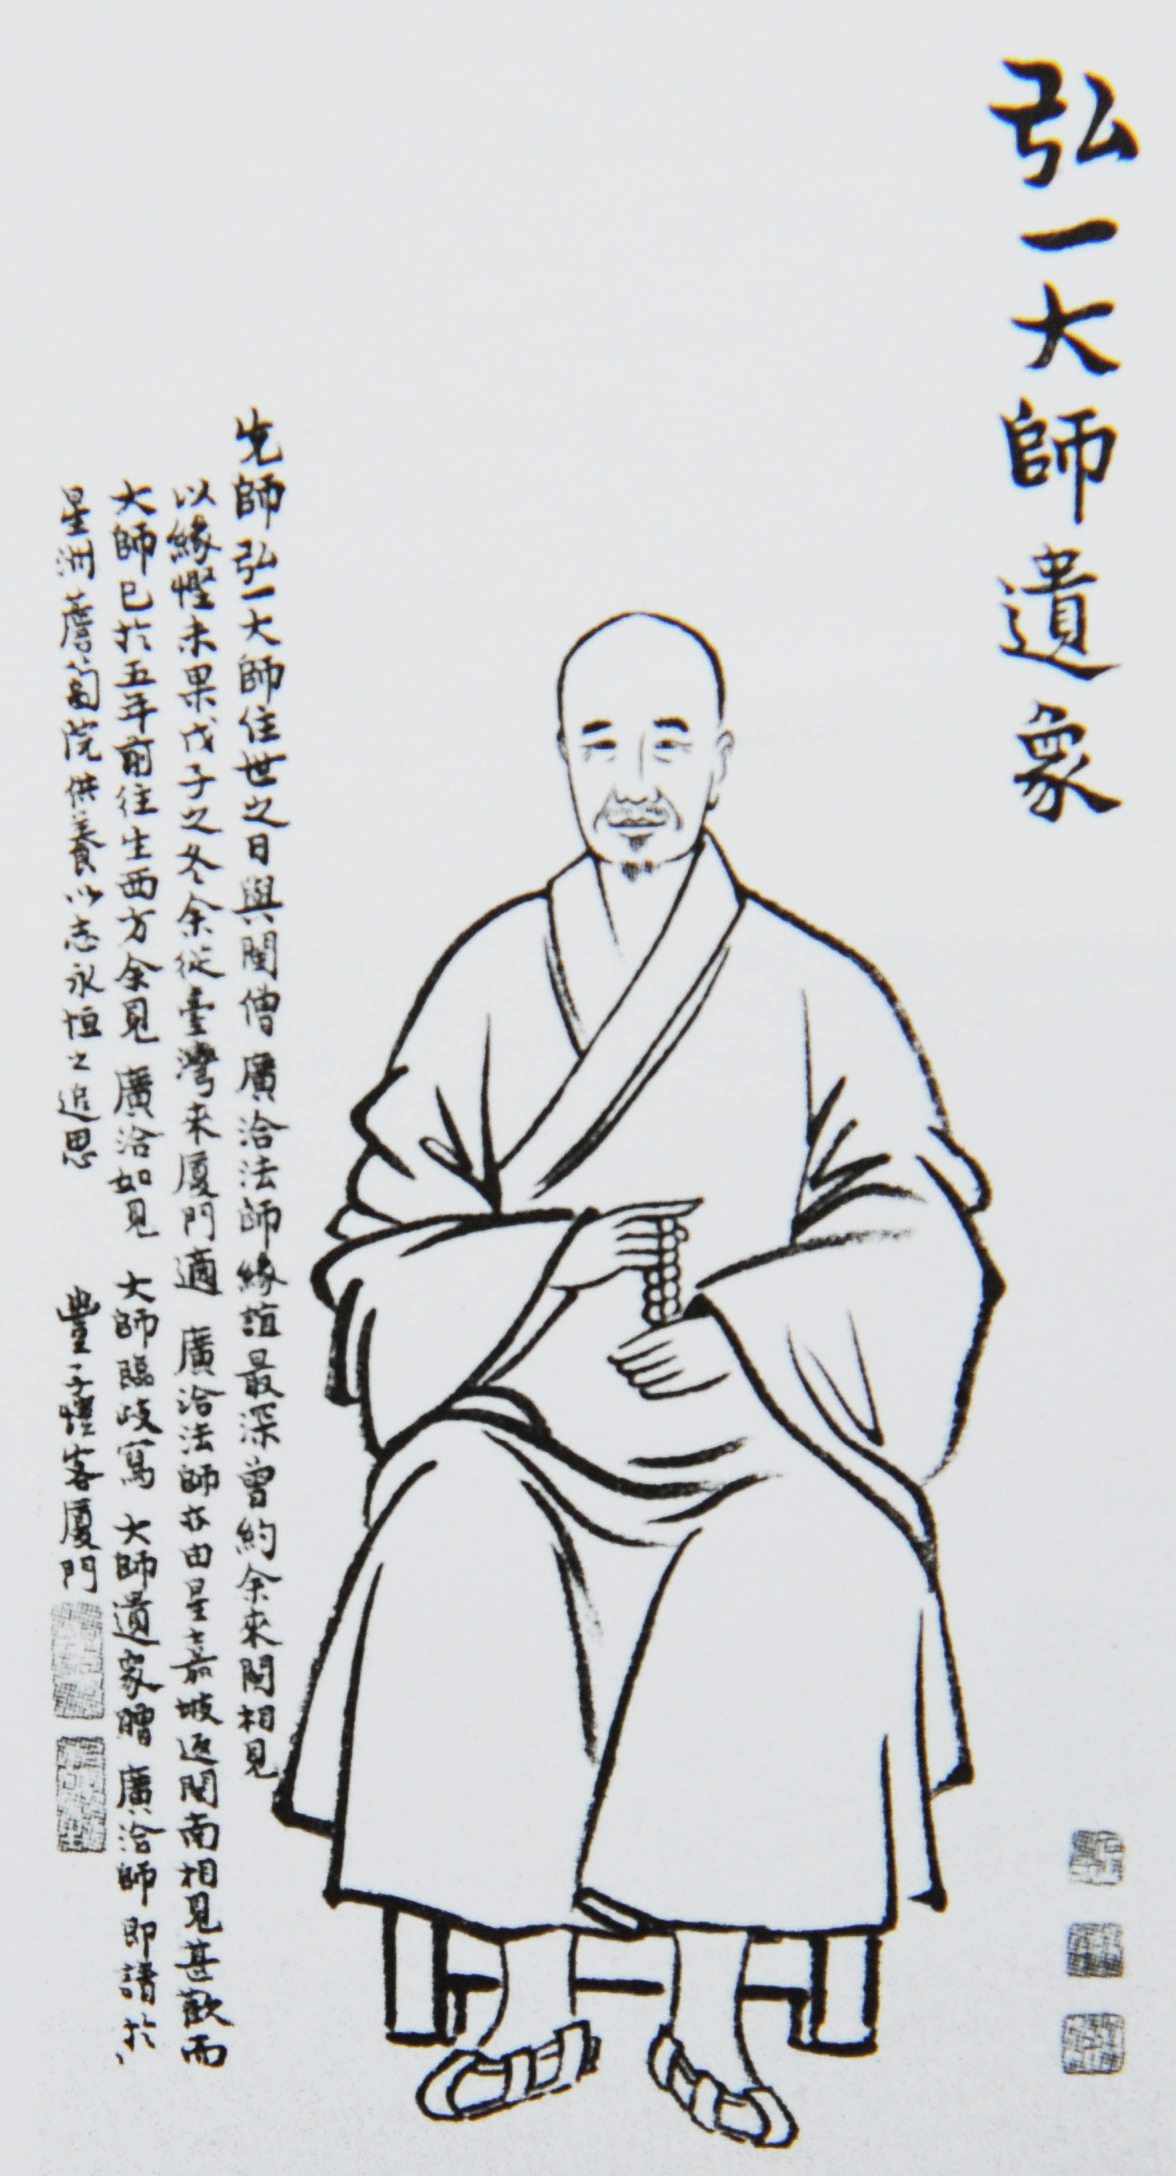 弘一大師遺象
先師弘一大師住世之日與閩僧廣洽法師緣誼最深曾約余來閩相見
以緣慳未果戊子之冬余從臺灣来厦門適廣洽法師亦由星嘉坡返閩南相見甚歡而
大師已於五年前往生西方余見廣洽如見大師臨歧寫大師遺象贈廣洽師即請於
星洲薝蔔院供養以志永恒之追思
豐子愷客厦門